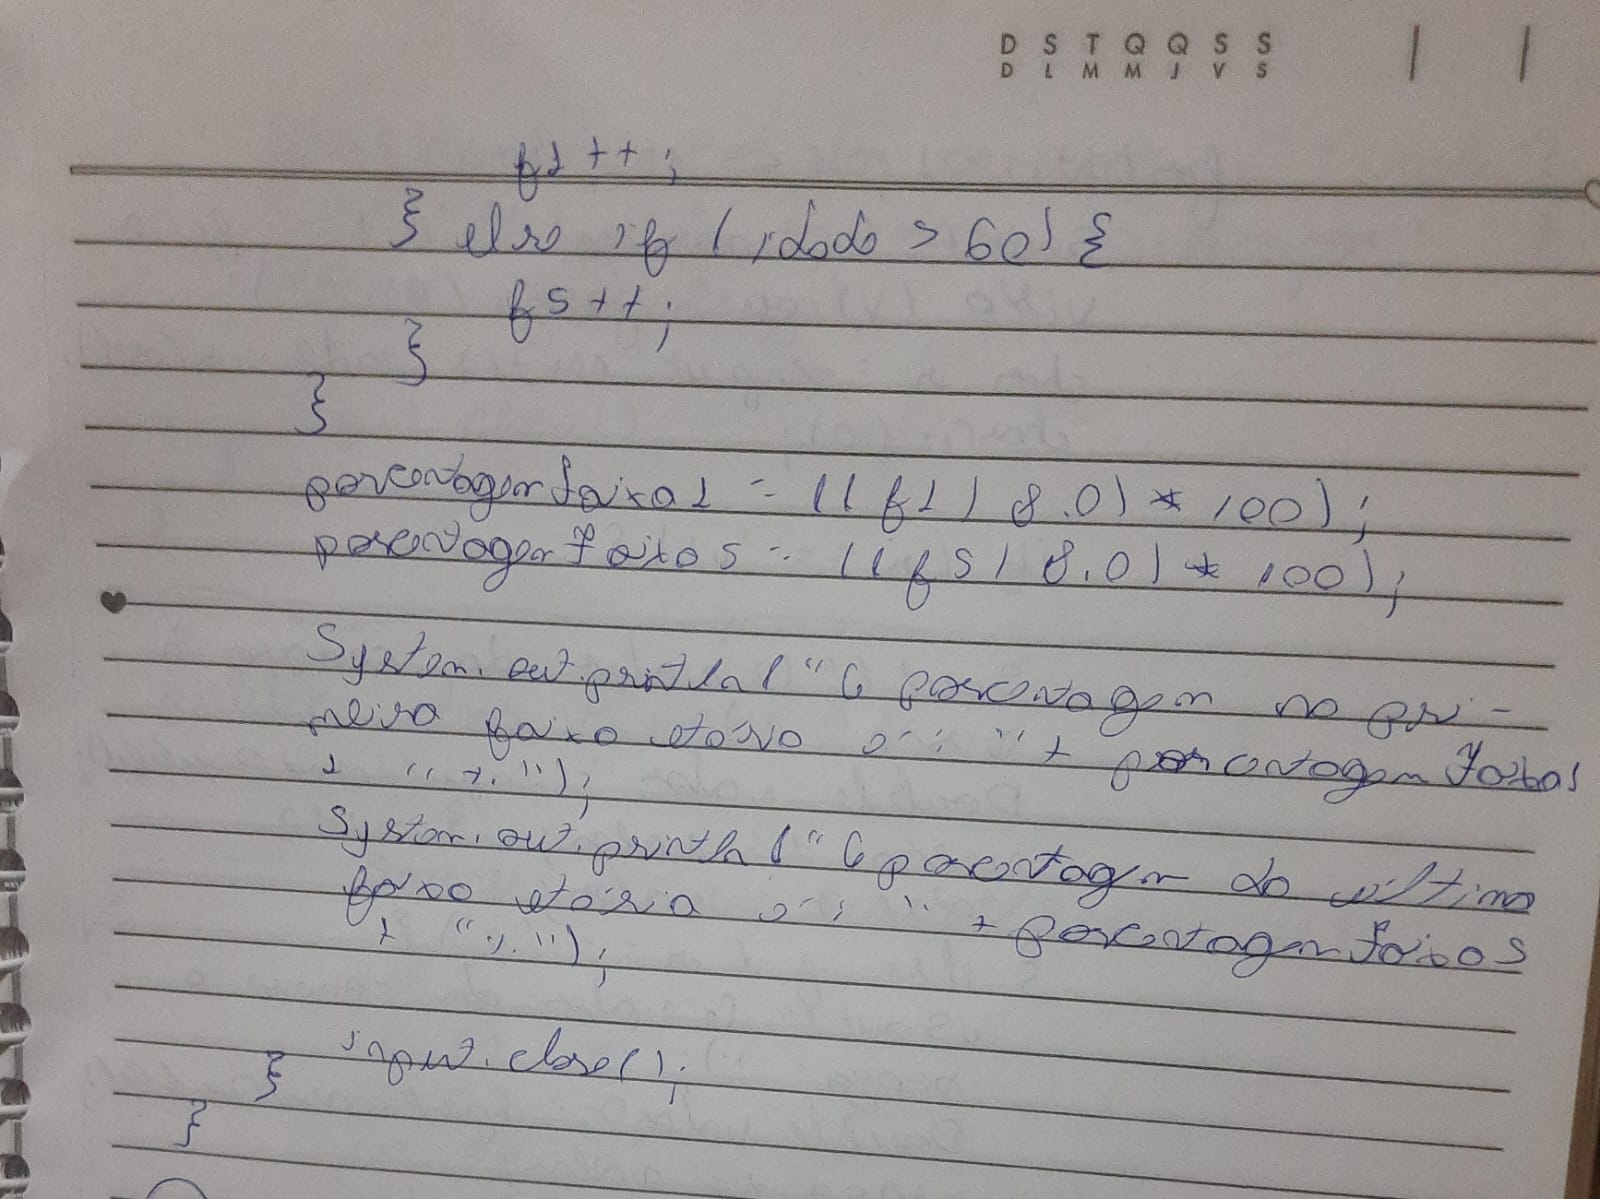 D S T Q Q S S
D L M M J V S
f1 ++;
} else if (idade > 60) {
f5 ++;
}
}
porcentagemFaixa1 = ((f1 / 8.0) * 100);
porcentagemFaixa5 = ((f5 / 8.0) * 100);
System.out.println("A porcentagem na pri-
meira faixa etária é: " + porcentagemFaixa1
+ "%.");
System.out.println("A porcentagem da última
faixa etária é: " + porcentagemFaixa5
+ "%.");
input.close();
}
}